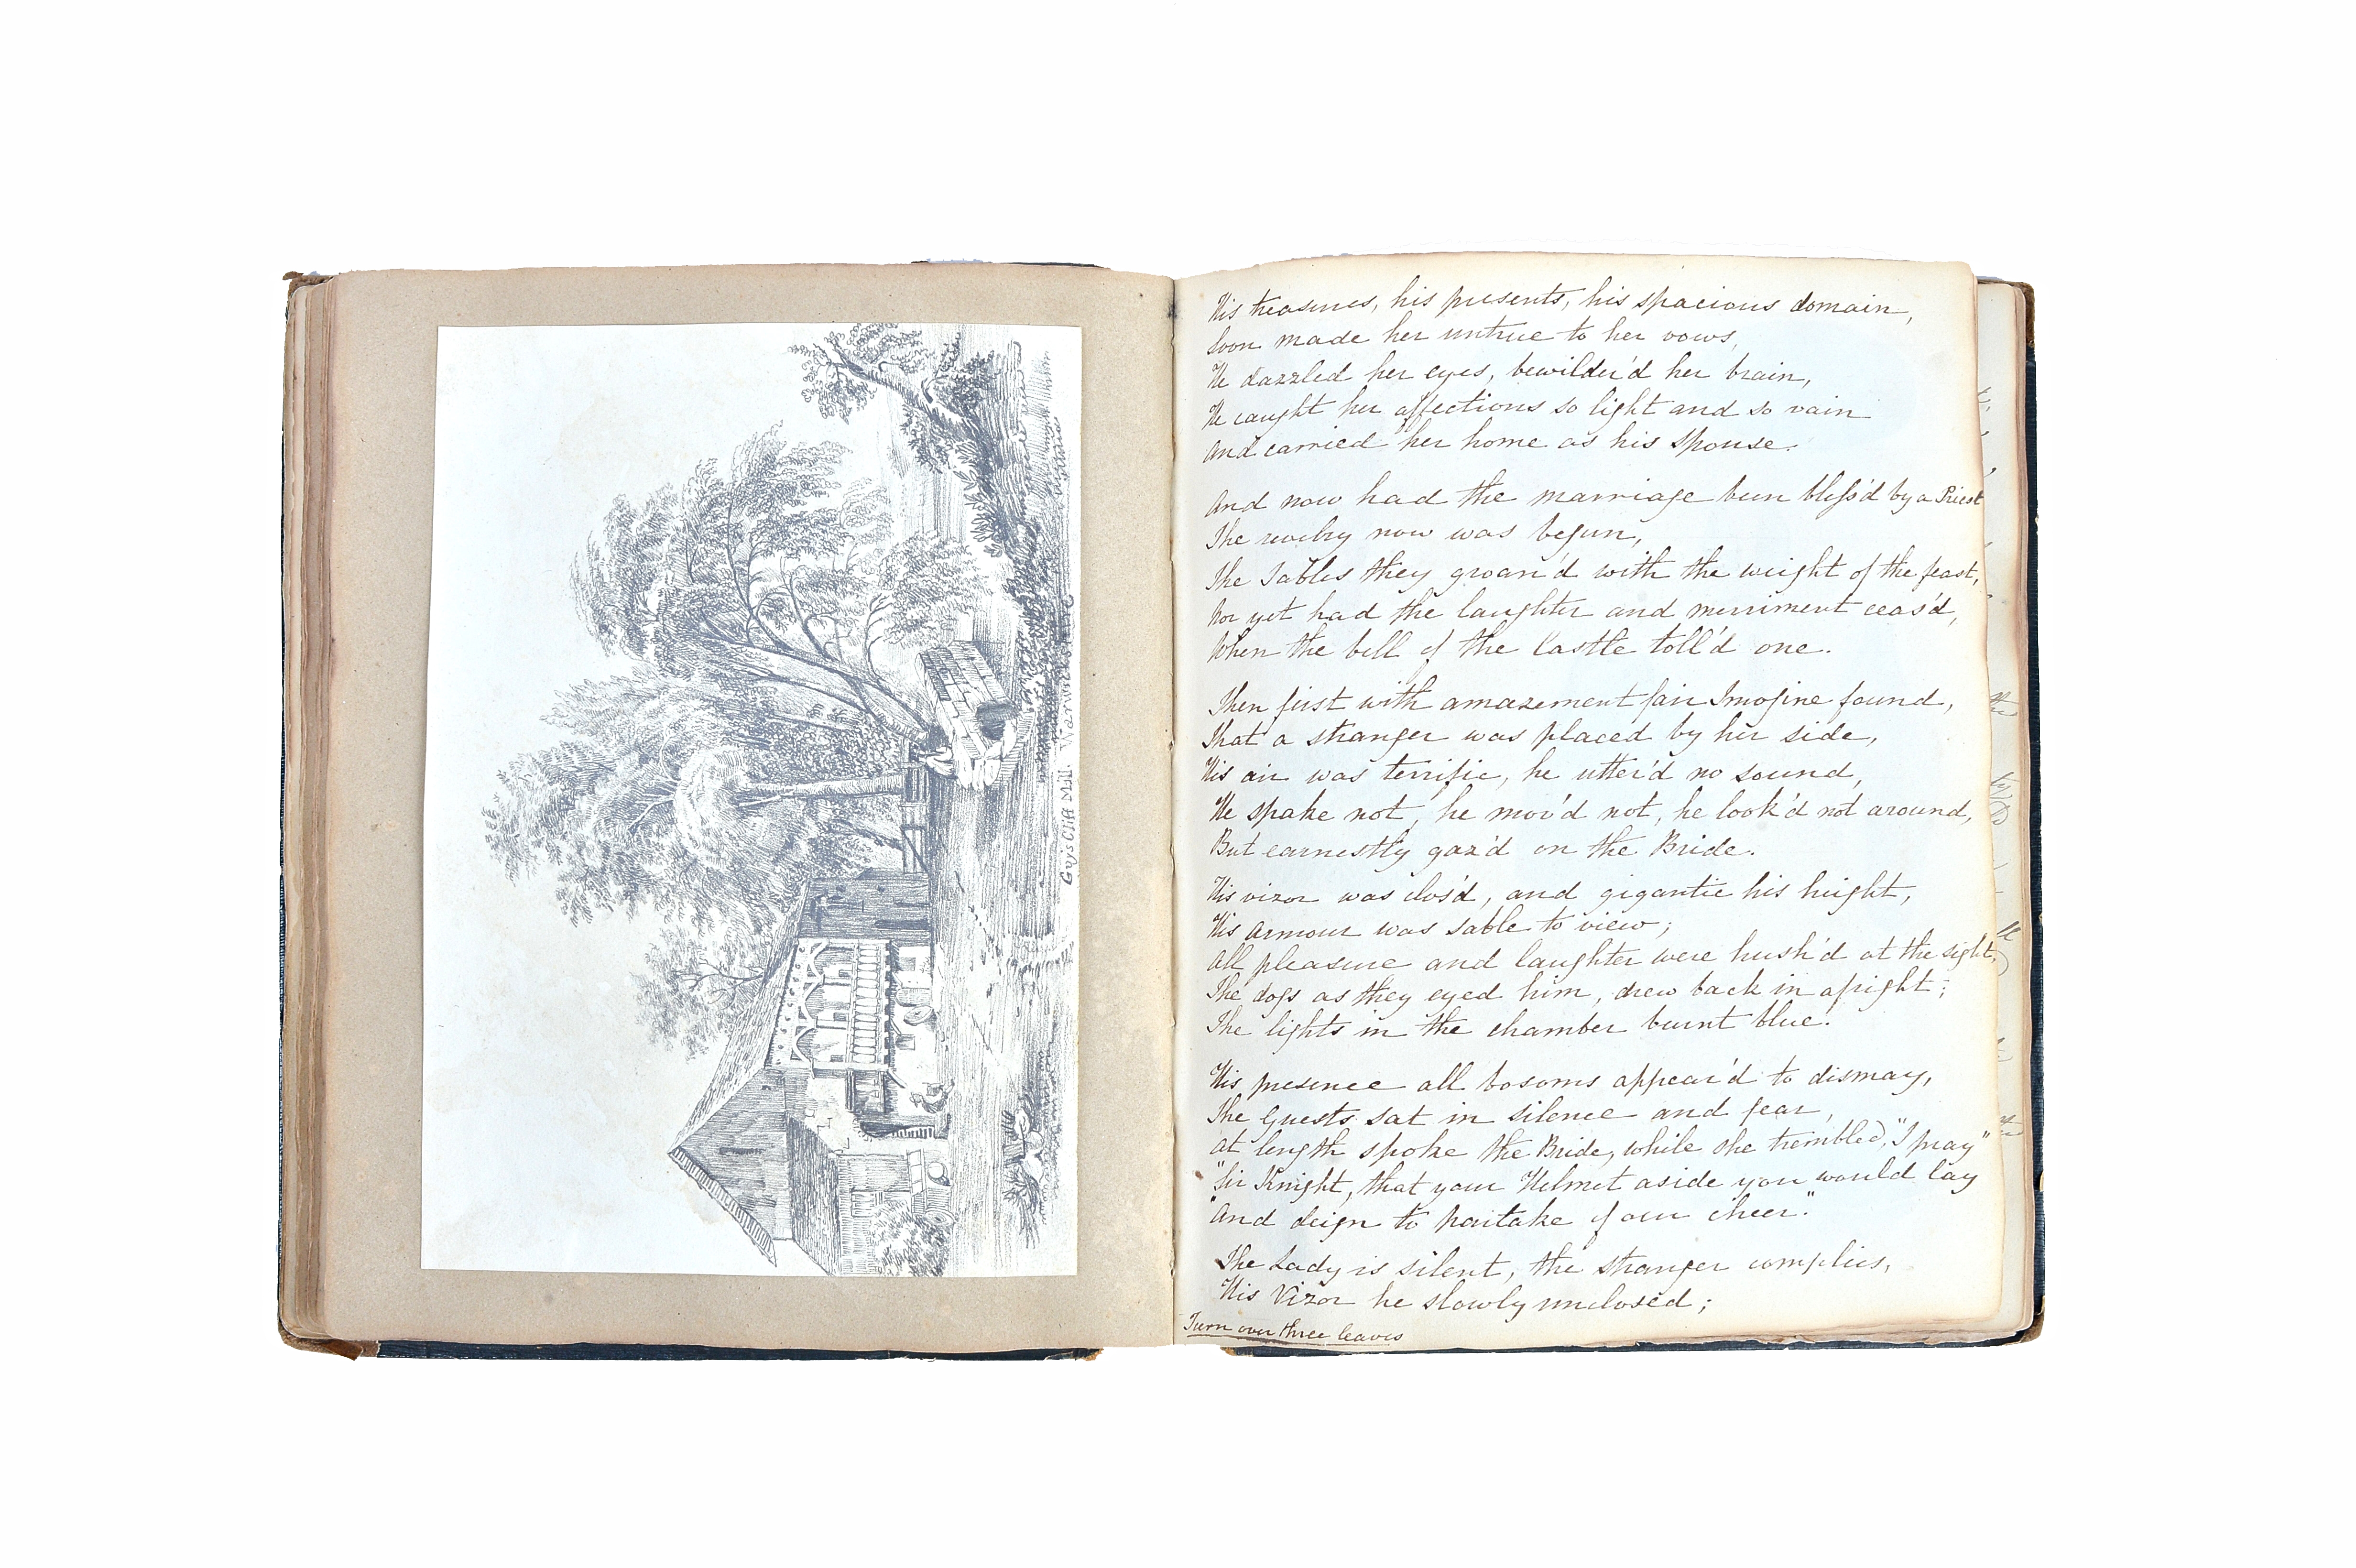 Guy's Cliff Mill. Warwickshire
His treasures, his presents, his spacious domain,
Soon made her untrue to her vows,
He dazzled her eyes, bewilder'd her brain,
He caught her affections so light and so vain
And carried her home as his spouse.
And now had the marriage been bless'd by a Priest
The revelry now was begun,
The Tables they groan'd with the weight of the feast,
Nor yet had the laughter and merriment ceas'd,
When the bell of the Castle toll'd one.
Then first with amazement fair Imogine found,
That a stranger was placed by her side,
His air was terrific, he utter'd no sound,
He spake not, he mov'd not, he look'd not around,
But earnestly gaz'd on the Bride.
His vizor was clos'd, and gigantic his height,
His armour was sable to view;
All pleasure and laughter were hush'd at the sight,
The dogs as they eyed him, drew back in afright;
The lights in the chamber burnt blue!
His presence all bosoms appear'd to dismay,
The Guests sat in silence and fear,
At length spoke the Bride, while she trembled, "I pray"
"Sir Knight, that your Helmet aside you would lay
"And deign to partake of our cheer."
The Lady is silent, the stranger complies,
His Vizor he slowly unclosed;
Turn over three leaves